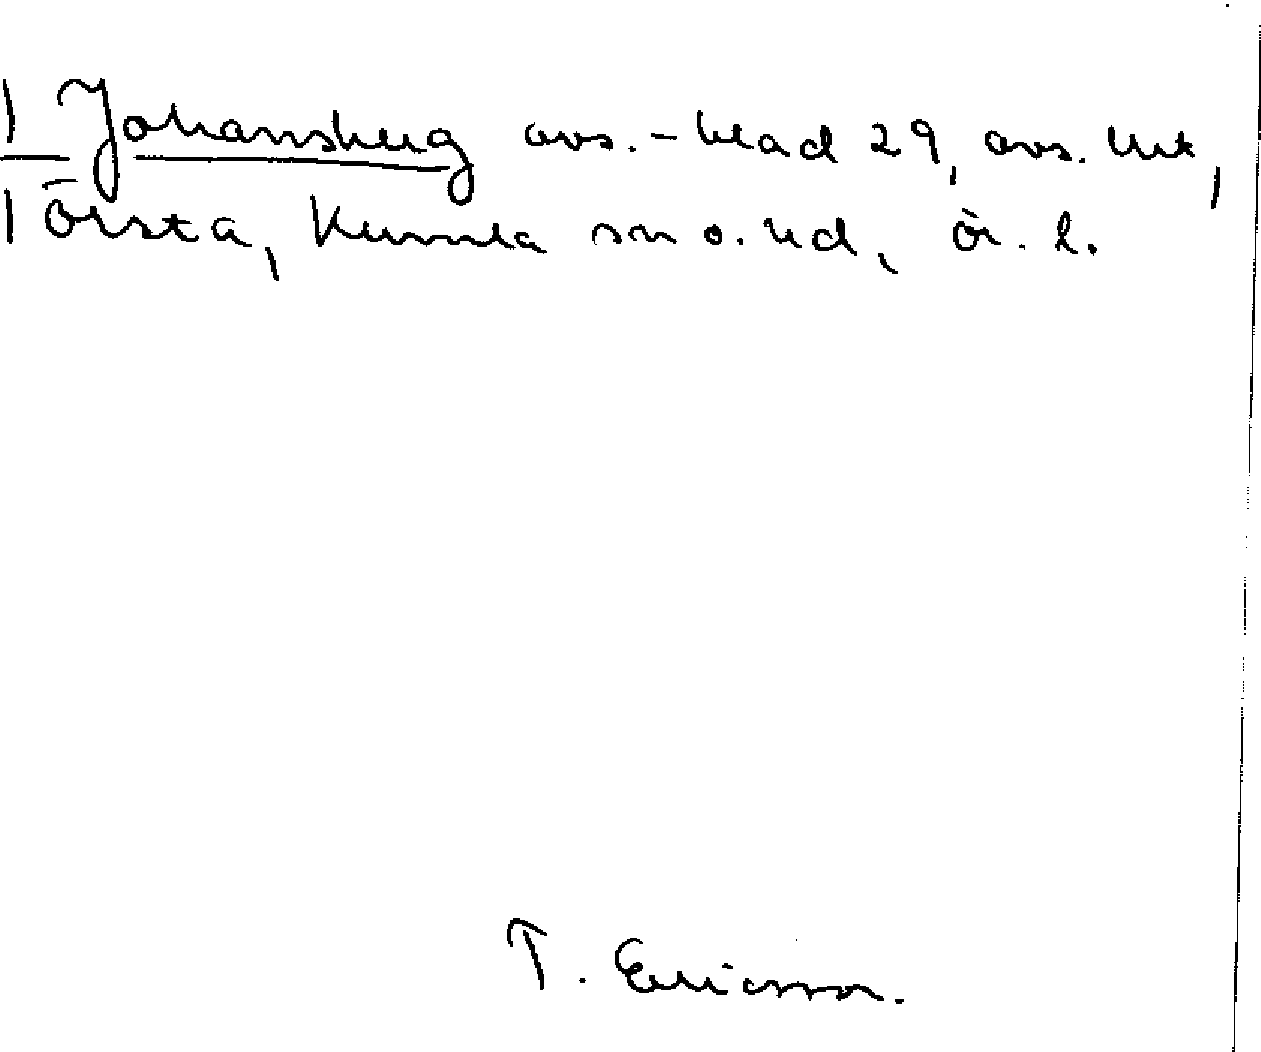 Johansberg avs.-blad 29, avs. till
Örsta, Kumla sn o. hd, Ör. l.
T. Ericsson.